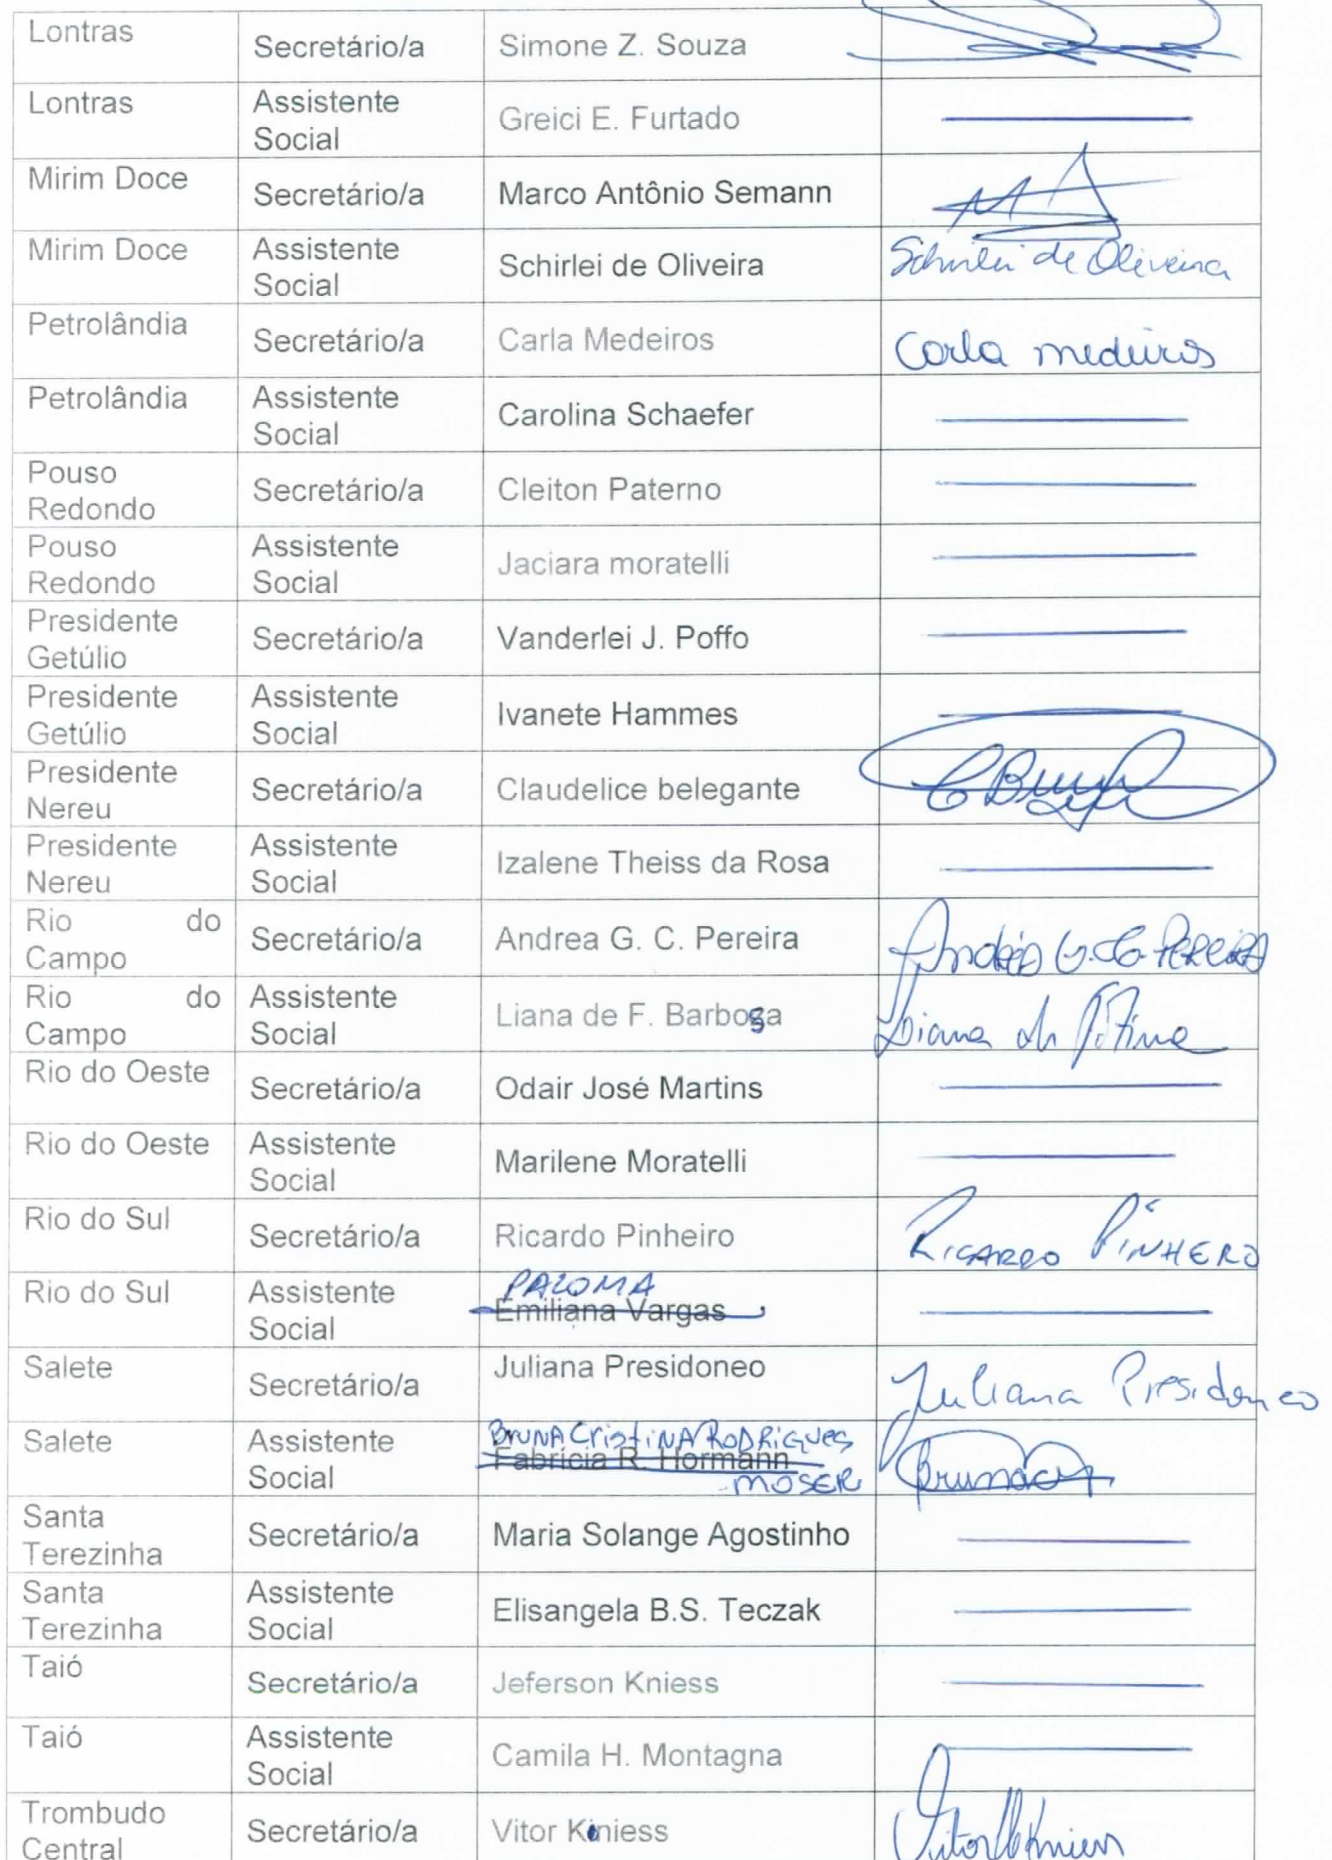 Lontras Secretário/a Simone Z. Souza
Lontras Assistente Social Greici E. Furtado
Mirim Doce Secretário/a Marco Antônio Semann
Mirim Doce Assistente Social Schirlei de Oliveira Schirlei de Oliveira
Petrolândia Secretário/a Carla Medeiros Carla medeiros
Petrolândia Assistente Social Carolina Schaefer
Pouso Redondo Secretário/a Cleiton Paterno
Pouso Redondo Assistente Social Jaciara moratelli
Presidente Getúlio Secretário/a Vanderlei J. Poffo
Presidente Getúlio Assistente Social Ivanete Hammes
Presidente Nereu Secretário/a Claudelice belegante
Presidente Nereu Assistente Social Izalene Theiss da Rosa
Rio do Campo Secretário/a Andrea G. C. Pereira Andréa G. C. PEREIRA
Rio do Campo Assistente Social Liana de F. Barbosa Liana de
Rio do Oeste Secretário/a Odair José Martins
Rio do Oeste Assistente Social Marilene Moratelli
Rio do Sul Secretário/a Ricardo Pinheiro RICARDO PINHERO
Rio do Sul Assistente Social PALOMA Emiliana Vargas
Salete Secretário/a Juliana Presidoneo Juliana Presidoneo
Salete Assistente Social BRUNA CristiNA RODRIGUES Fabrícia R. Hormann MOSER
Santa Terezinha Secretário/a Maria Solange Agostinho
Santa Terezinha Assistente Social Elisangela B.S. Teczak
Taió Secretário/a Jeferson Kniess
Taió Assistente Social Camila H. Montagna
Trombudo Central Secretário/a Vitor Kniess